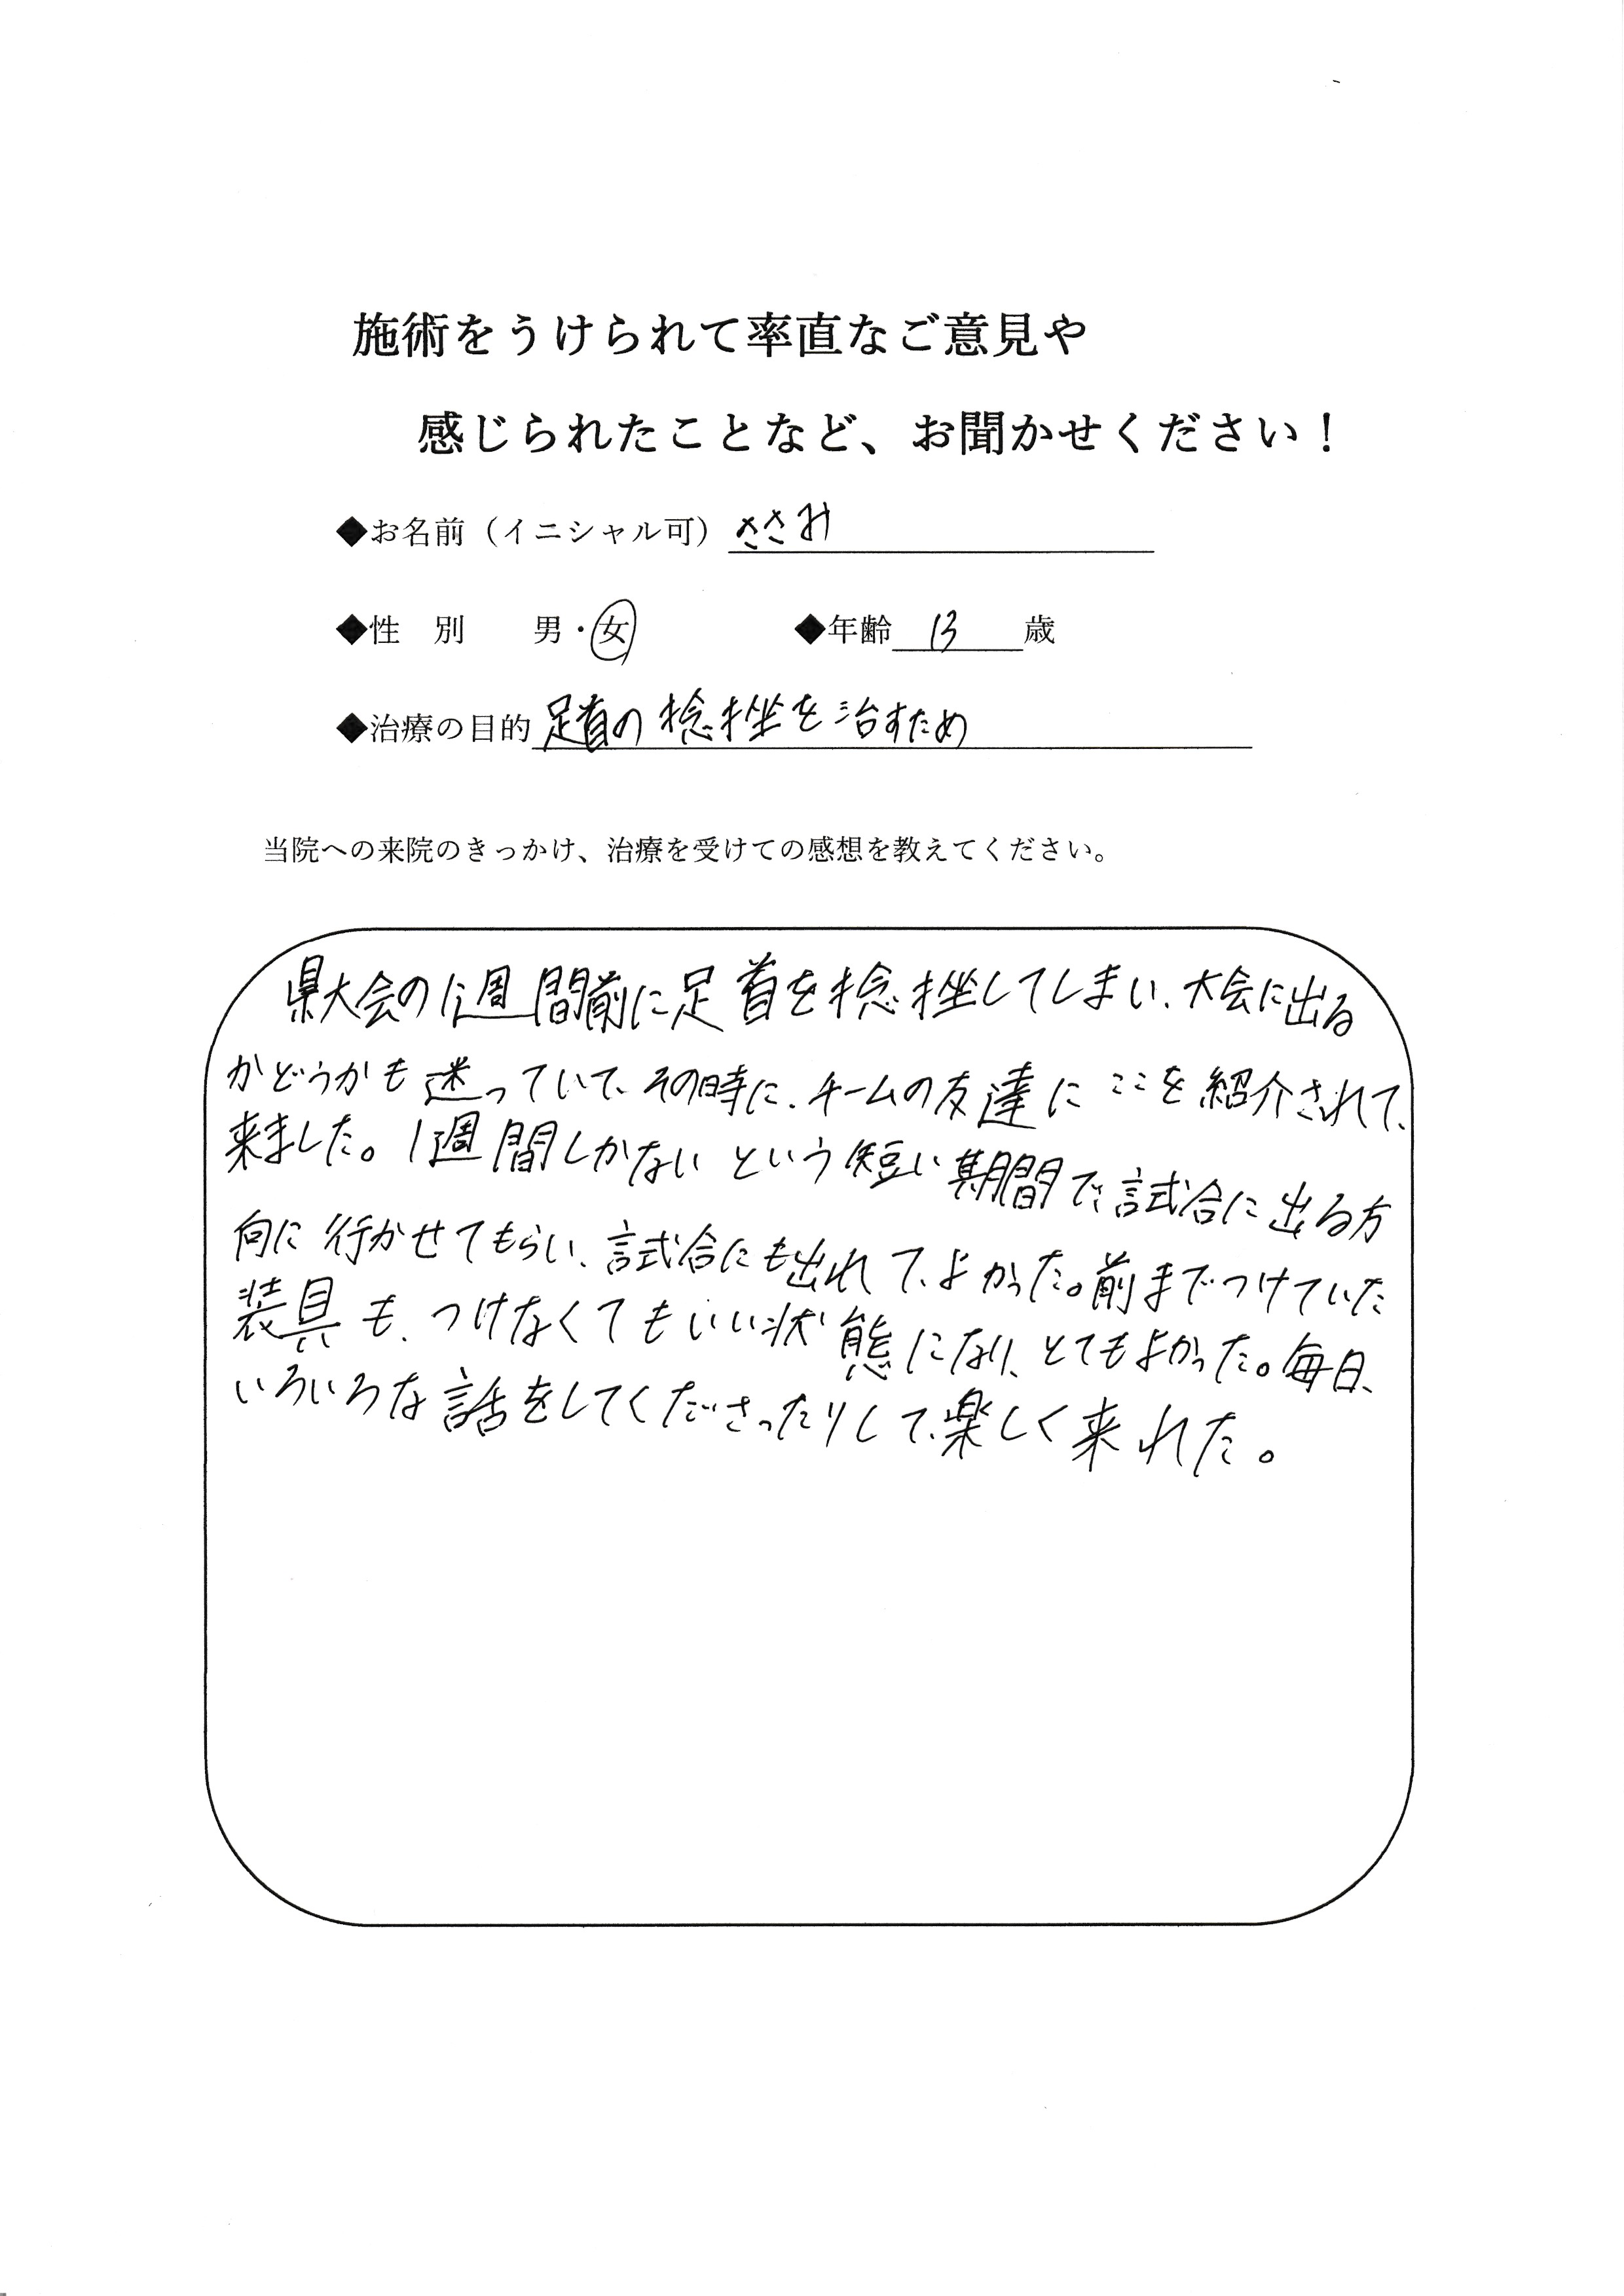 施術をうけられて率直なご意見や
感じられたことなど、お聞かせください！
◆お名前（イニシャル可） ささみ
◆性 別 男・女 ◆年齢 13 歳
◆治療の目的 足首の捻挫を治すため
当院への来院のきっかけ、治療を受けての感想を教えてください。
県大会の1週間前に足首を捻挫してしまい、大会に出る
かどうかも迷っていて、その時に、チームの友達にここを紹介されて、
来ました。1週間しかないという短い期間で、試合に出る方
向に行かせてもらい、試合にも出れて、よかった。前までつけていた
装具も、つけなくてもいい状態になり、とてもよかった。毎日、
いろいろな話をしてくださったりして、楽しく来れた。